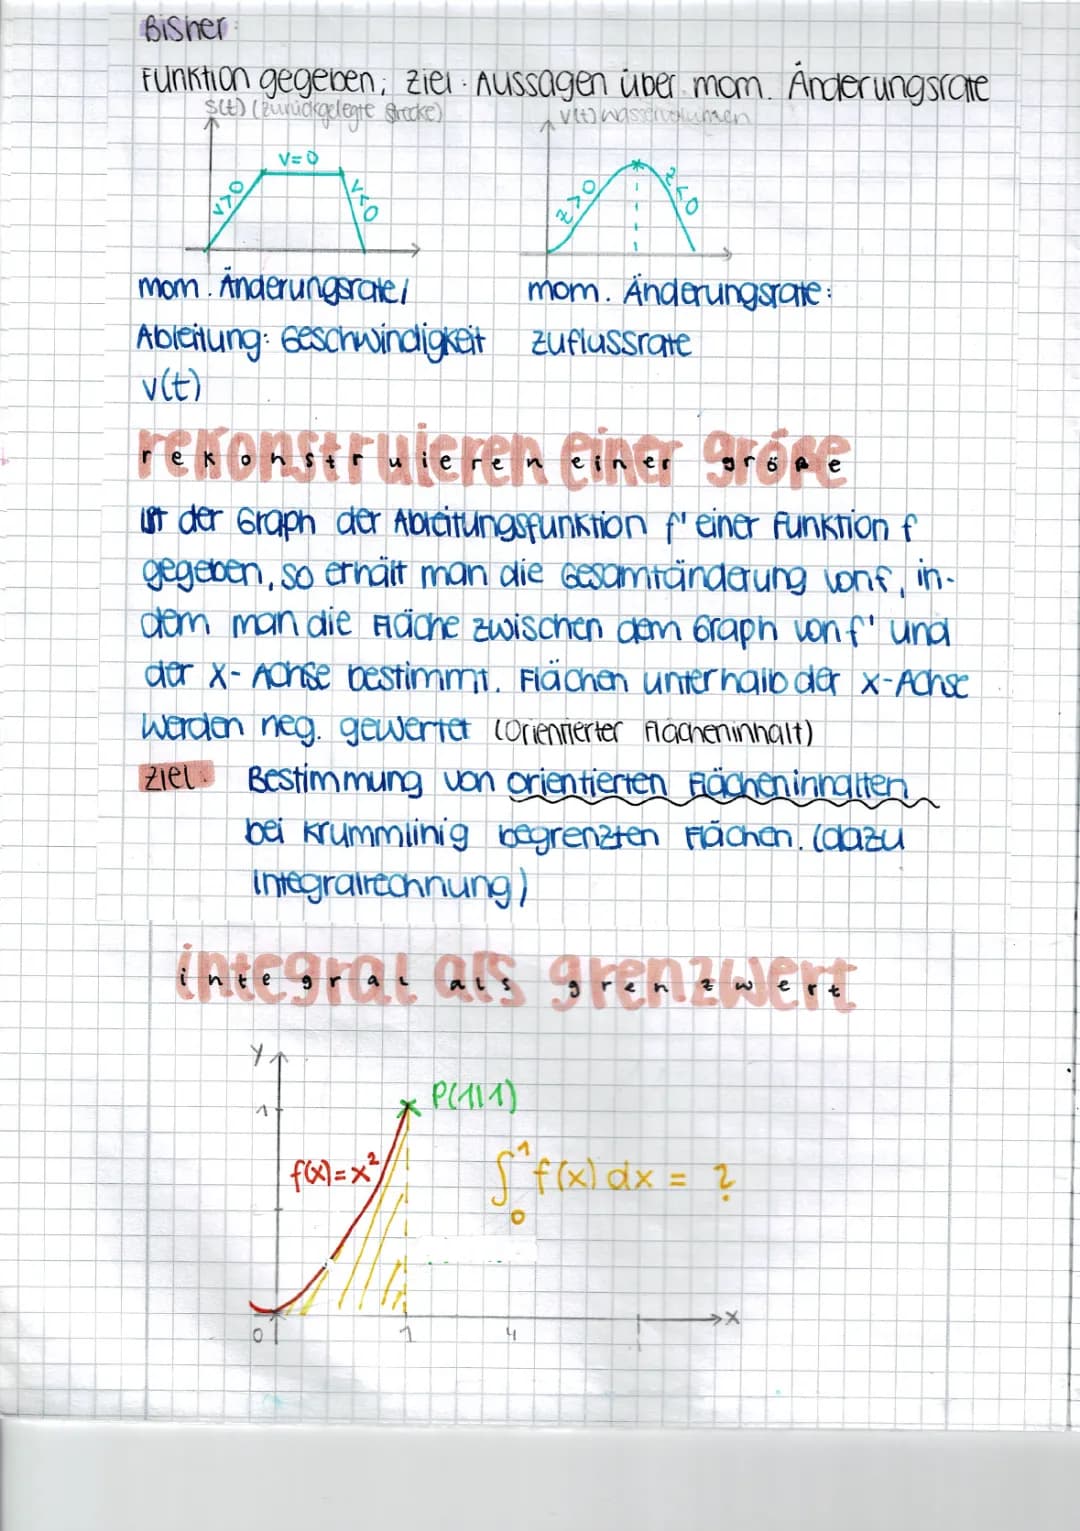 Bisher:
Funktion gegeben; Ziel: Aussagen über mom. Änderungsrate
s(t) (zurückgelegte Strecke)
V(t) Wasservolumen
v>0
v=0
v<0
z>0
z<0
mom. Änderungsrate/
Ableitung: Geschwindigkeit
v(t)
mom. Änderungsrate:
Zuflussrate
rekonstruieren einer größe
rekonstruieren einer größe
Ist der Graph der Ableitungsfunktion f' einer Funktion f
gegeben, so erhält man die Gesamtänderung von f, in-
dem man die Fläche zwischen dem Graph von f' und
der x-Achse bestimmt. Flächen unterhalb der x-Achse
werden neg. gewertet (Orientierter Flächeninhalt)
Ziel: Bestimmung von orientierten Flächeninhalten
bei krummlinig begrenzten Flächen. (dazu
Integralrechnung)
integral als grenzwert
integral als grenzwert
y
1
P(1|1)
f(x)=x²
∫₀¹ f(x) dx = ?
0
1
4
x